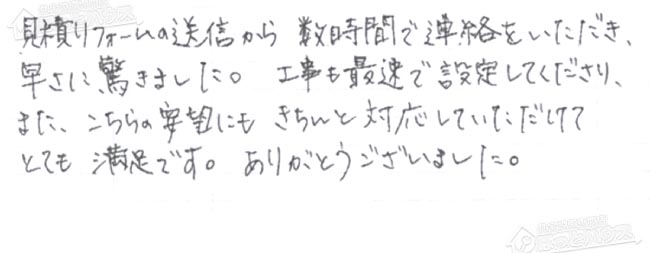 見積りフォームの送信から 数時間で連絡をいただき、
早さに驚きました。 工事も最速で設定してくださり、
また、こちらの要望にも きちんと対応していただけて
とても 満足です。 ありがとうございました。